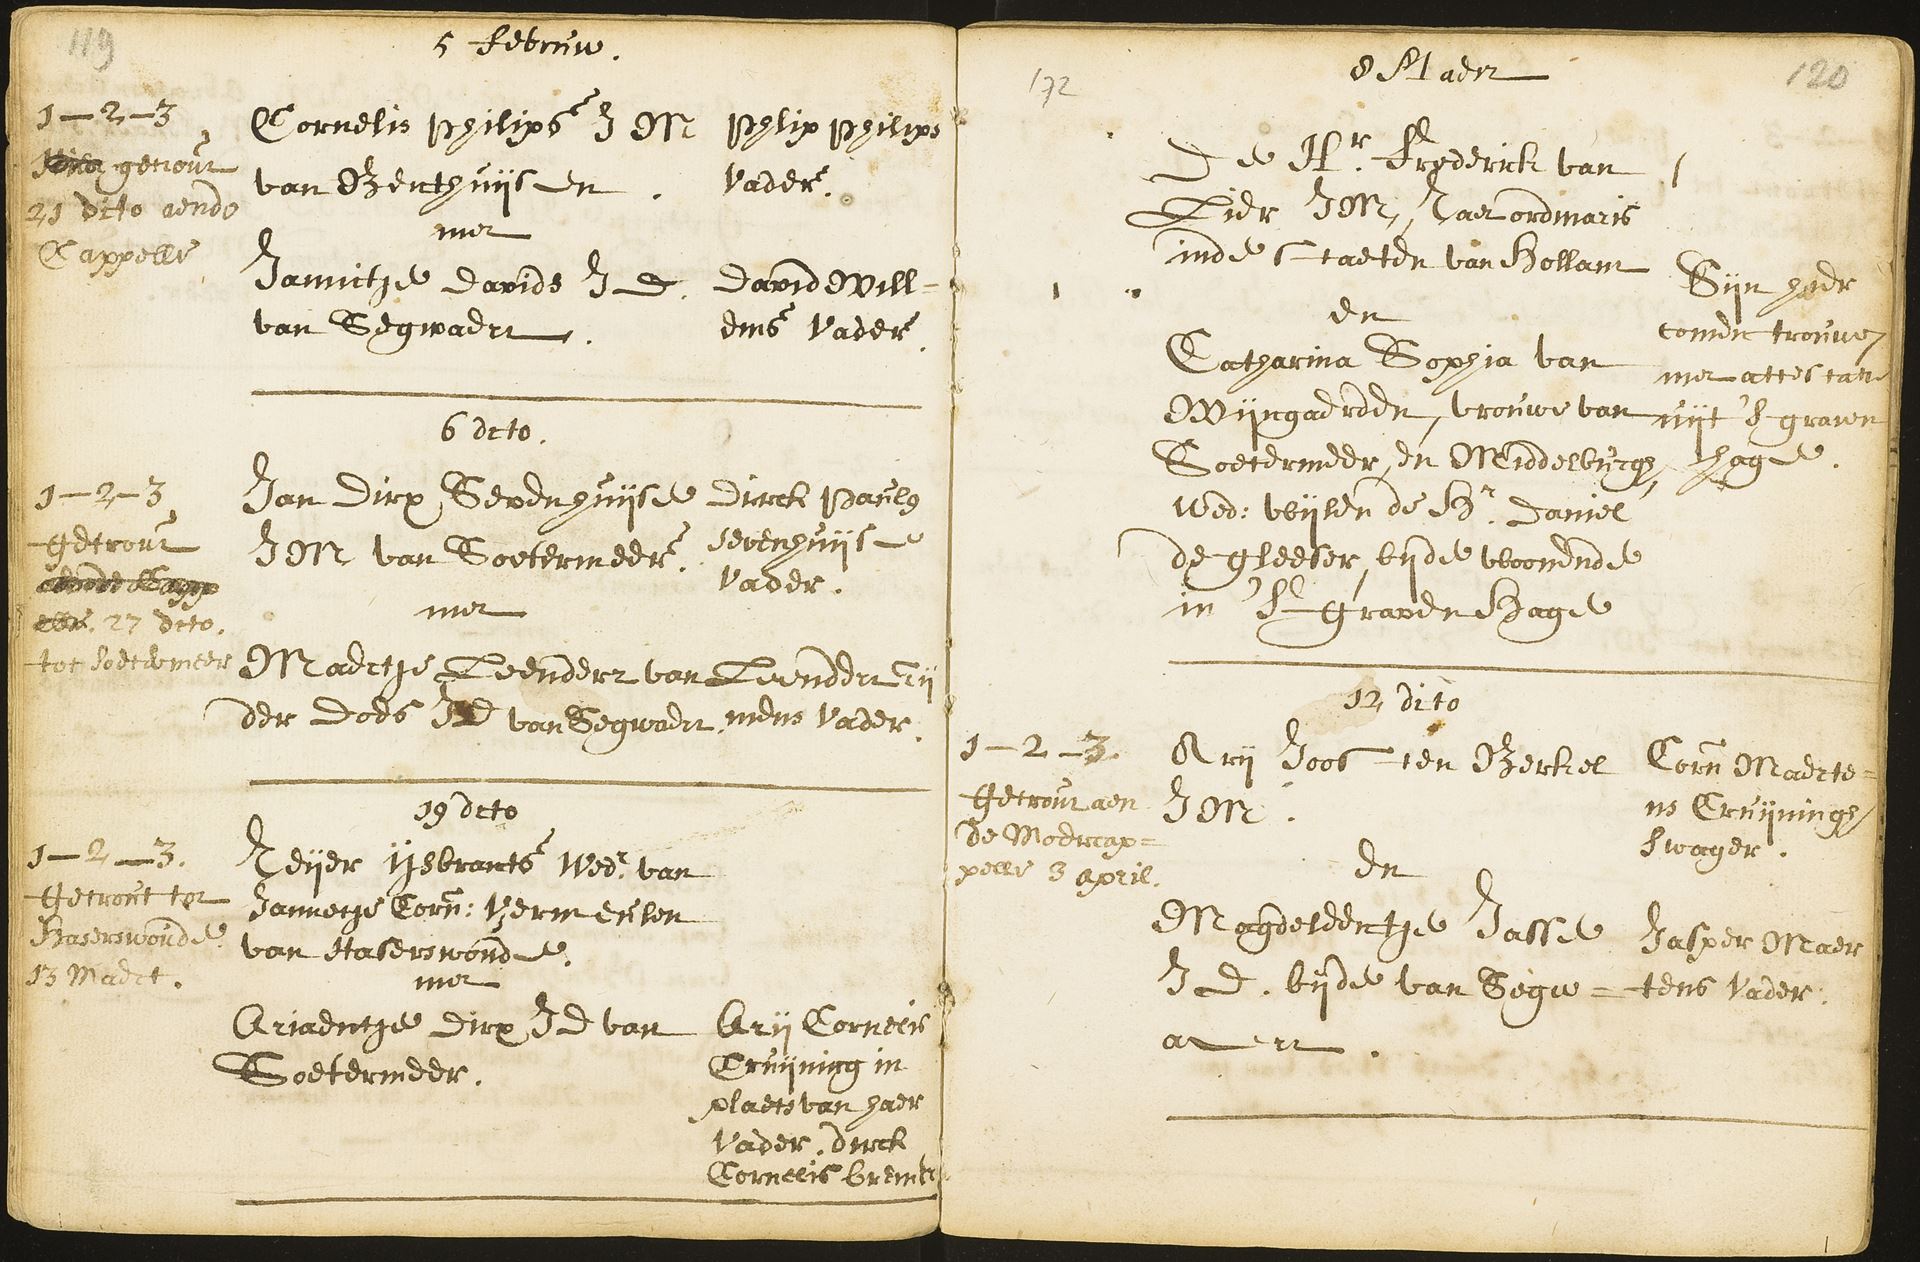 119
5 februw.
1—2—3
getrout
21 dito aende
Cappelle
Cornelis philips JM
van Benthuijsen.
met
Jannitje davids JD.
van Segwaert.
phlip philips
Vader.
david Will=
ems Vader.
6 dito.
1—2—3
Getrout
27 dito.
tot soetermeer
Jan Dirx Sevenhuijse
JM van Soetermeer.
met
Maertje Leendert van
der Does JD van Segwaert.
Dirck Pauls
sevenhuijse
Vader.
Leendert
mens Vader.
19 dito
1—2—3.
Getrout tot
Haserswoude
13 Maert.
Reijer ijsbrants Wedr. van
Jannetje Corn: Vermeulen
van Haserswoude.
met
Ariaentje dirx JD van
Soetermeer.
Arij Cornelis
Cruijning in
plaets van haer
Vader, dirck
Cornelis bremer
172
8 Maert
120
De Hr. Frederick van
Lier JM, Raet ordinaris
inde Staeten van Hollant
en
Catharina Sophia van
Wijngaerden, vrouwe van
Soetermeer, en Middelburgh,
Wed: wijlen de Hr. Daniel
de gleeser, bijde woonende
in 's Graven Hage
Sijn hier
comen trouwe
met attestatie
uijt 's graven
hage.
12 dito
1—2—3.
Getrout aen
de Moercap=
pelle 3 april.
Arij Joosten Berkel
JM.
en
Magdeleentje Jasse
JD. bijde van Segw=
aert.
Corn Maerte=
ns Cruijningh
Swager.
Jasper Maer
tens Vader.